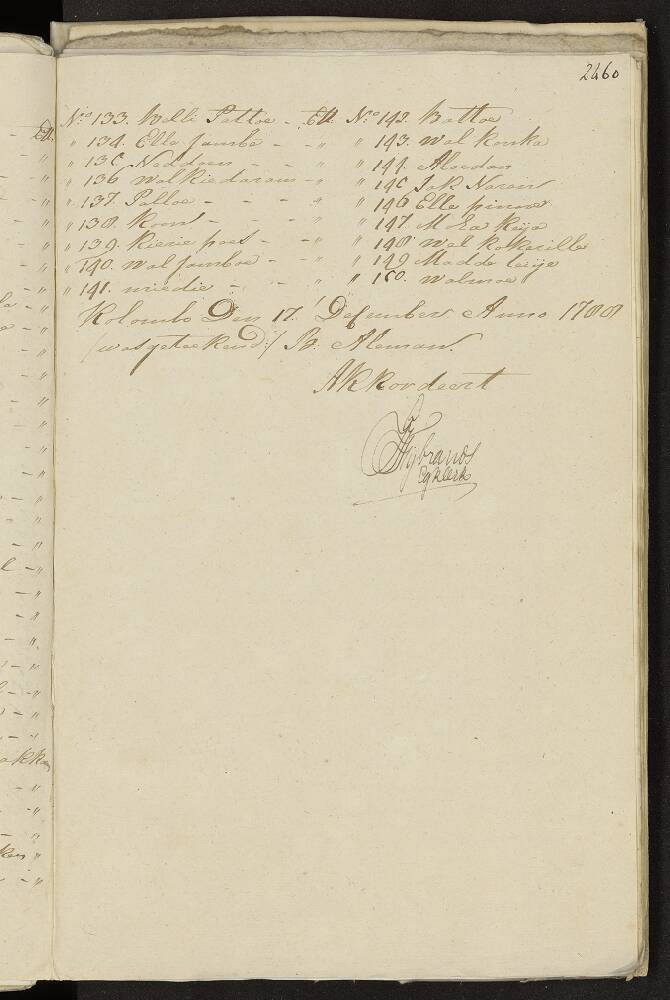 2460
N:o 133. Welli Pattoe - Ett N:o 142. Battoe
" 134. Elle Jambe - - " " 143. wal konka
" 135. Naddoen - - " " 144. Aloedan
" 136. walkiedarans - " " 145. Jak Naran
" 137. Palloe - - - " " 146. Elle pinoe
" 138. koon - - - " " 147. Mora keya
" 139. kierie pas - - " " 148. wal kokecille
" 140. wal Jamboe - - " " 149. Madde teije
" 141. miedie - - - " " 150. walmoe
Kolombo Den 17:' December Anno 1788
/:was geteekend:/ B: Aleman.
Akkordeert
Sijbrands
Eg klerk